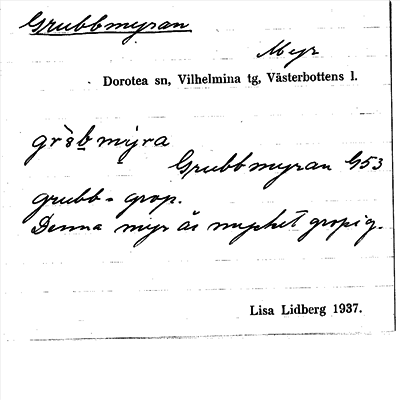 Grubbmyran
Myr
Dorotea sn, Vilhelmina tg, Västerbottens l.
mýra
Grubbmyran G53
grubb = grop.
Denna myr är mycket gropig.
Lisa Lidberg 1937.